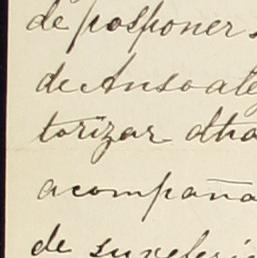 de posponer
de Ansoate
torizar dha
acompaña
de su